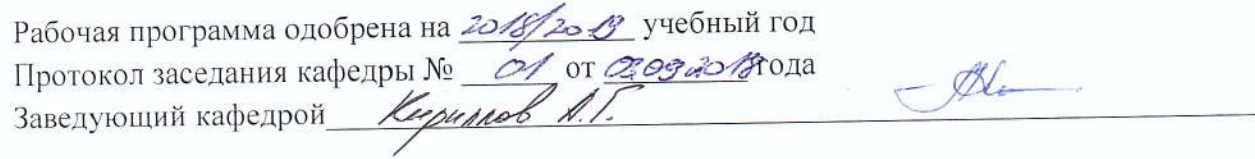 Рабочая программа одобрена на 2018/2019 учебный год
Протокол заседания кафедры № 01 от 02.09.2018 года
Заведующий кафедрой Кириллов А.Г.